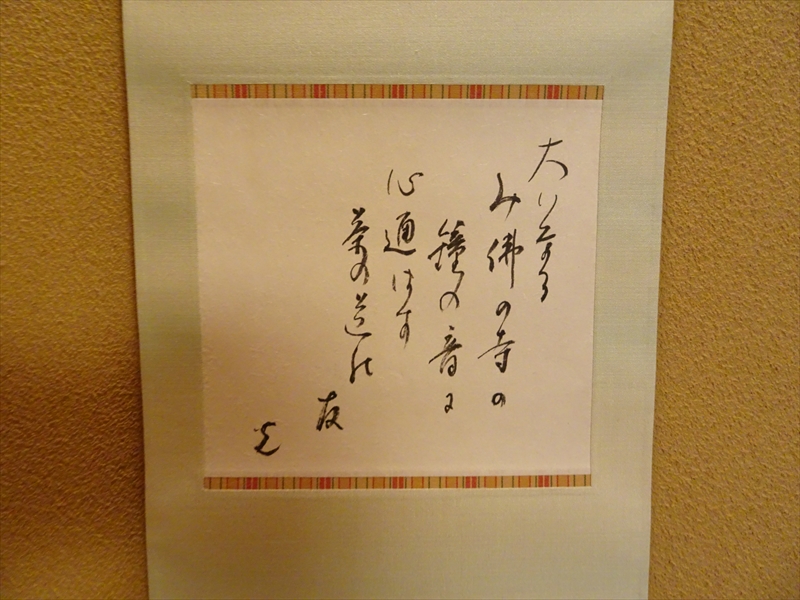 大いなる
み佛の寺の
鐘の音に
心通はす
茶の道の
友